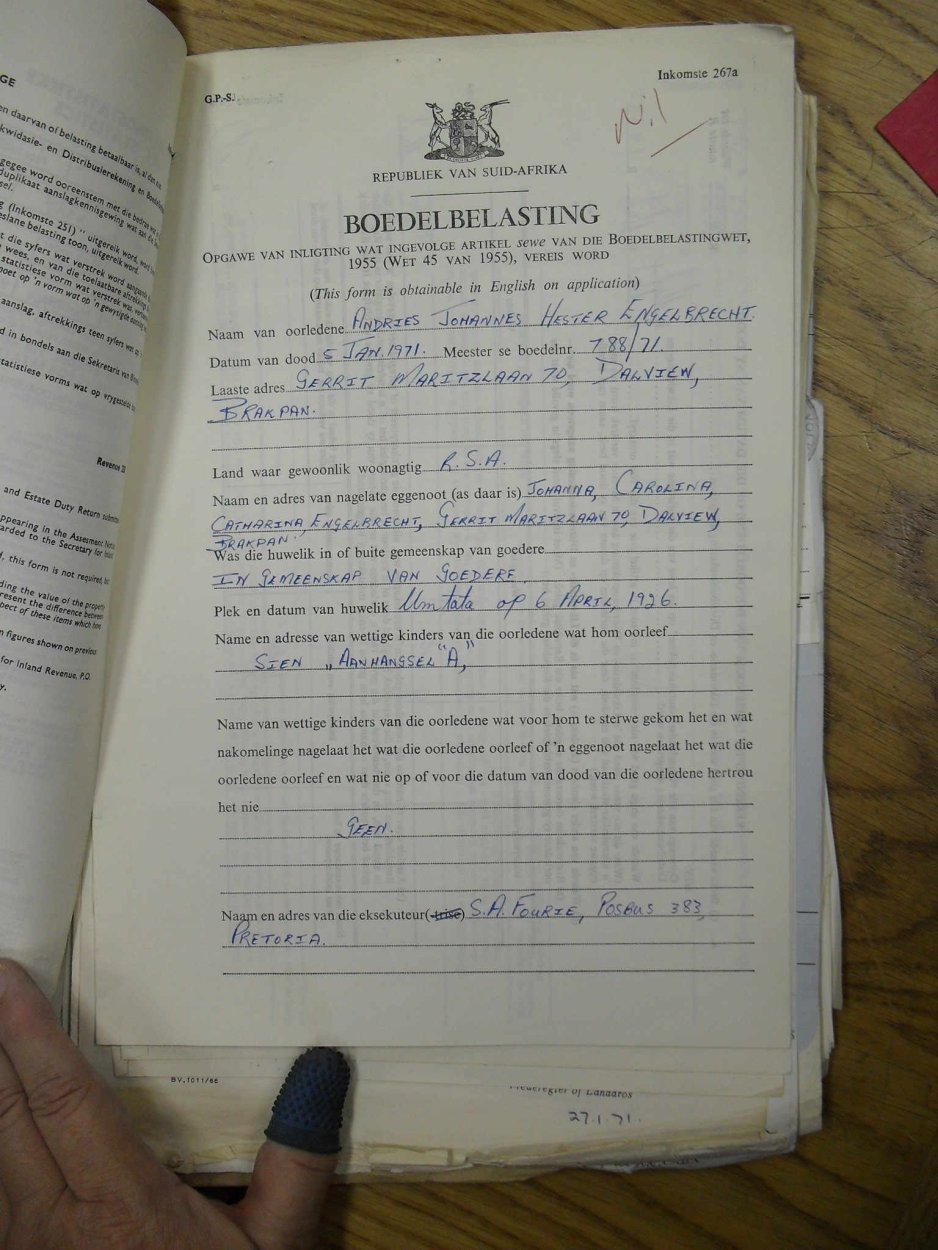 GE
en daarvan of belasting betaalbaar is, al dan nie
kwidasie- en Distribusierekening en Boedel
gegee word ooreenstem met die bedrae wat
duplikaat aanslagkennisgewing wat aan die
sel.
g (Inkomste 251) " uitgereik word, word
eslane belasting toon, uitgereik word.
t die syfers wat verstrek word aangaande
wees, en van die toelaatbare aftrekkings
statistiese vorm wat verstrek was verwerk
moet op 'n vorm wat op 'n gewysigde aanslag
aanslag, aftrekkings teen syfers wat op
d in bondels aan die Sekretaris van Binne
statistiese vorms wat op vrygestelde
Revenue 25
and Estate Duty Return
ppearing in the Assessment
arded to the Secretary for Inland
, this form is not required,
ding the value of the property
resent the difference between
pect of these items which have
n figures shown on previous
for Inland Revenue, P.O.
y.
G.P.-S.
Inkomste 267a
Nil
REPUBLIEK VAN SUID-AFRIKA
BOEDELBELASTING
OPGAWE VAN INLIGTING WAT INGEVOLGE ARTIKEL sewe VAN DIE BOEDELBELASTINGWET,
1955 (WET 45 VAN 1955), VEREIS WORD
(This form is obtainable in English on application)
Naam van oorledene ANDRIES JOHANNES HESTER ENGELBRECHT.
Datum van dood 5 JAN. 1971. Meester se boedelnr. 788/71.
Laaste adres GERRIT MARITZLAAN 70, DALVIEW,
BRAKPAN.
Land waar gewoonlik woonagtig R.S.A.
Naam en adres van nagelate eggenoot (as daar is) JOHANNA, CAROLINA,
CATHARINA ENGELBRECHT, GERRIT MARITZLAAN 70, DALVIEW,
BRAKPAN.
Was die huwelik in of buite gemeenskap van goedere
IN GEMEENSKAP VAN GOEDERE.
Plek en datum van huwelik Umtata op 6 APRIL, 1926.
Name en adresse van wettige kinders van die oorledene wat hom oorleef
SIEN „AANHANGSEL "A"
Name van wettige kinders van die oorledene wat voor hom te sterwe gekom het en wat
nakomelinge nagelaat het wat die oorledene oorleef of 'n eggenoot nagelaat het wat die
oorledene oorleef en wat nie op of voor die datum van dood van die oorledene hertrou
het nie
GEEN.
Naam en adres van die eksekuteur(-trise) S.A. FOURIE, POSBUS 383,
PRETORIA.
BV.1011/66
Vrederegter of Landdros
27.1.71.